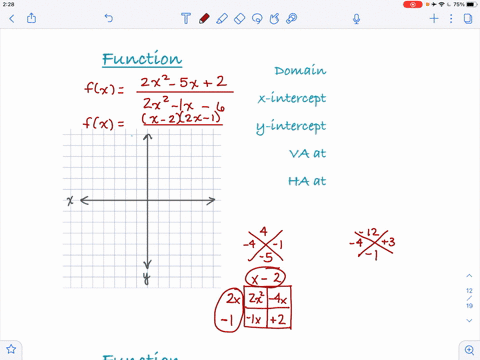 2:28
75%
Function
f(x) = 2x² - 5x + 2 / 2x² - 1x - 6
f(x) = (x-2)(2x-1)
Domain
x-intercept
y-intercept
VA at
HA at
x
y
4
-4 -1
-5
-12
-4 +3
-1
x - 2
2x 2x² -4x
-1 -1x +2
12
19
Function